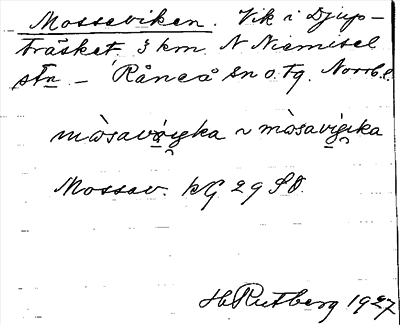 Mosseviken. Vik i Djup-
träsket. 3 km. N Niemisel
stn – Råneå sn o. tg. Norrb. l.
mòsavigka ~ mòsavigika
Mossav. kG 29 SO.
H Rutberg 1927